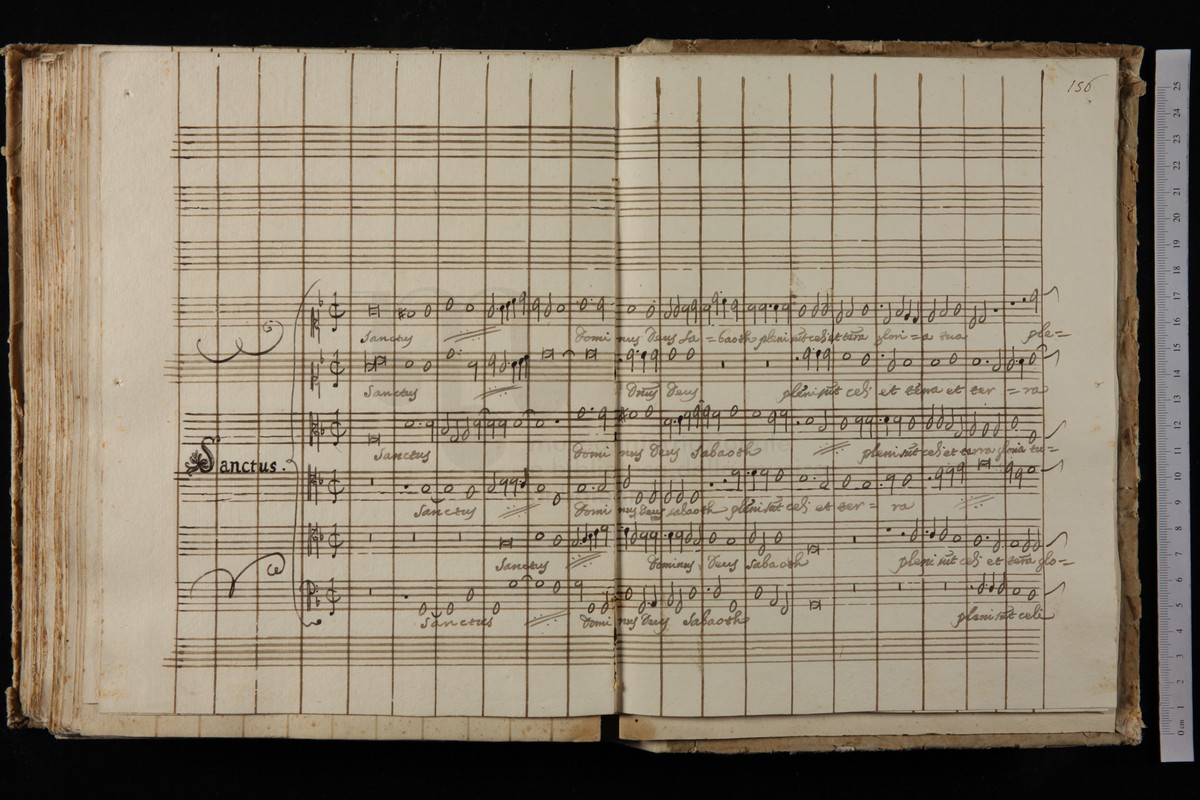 156
Sanctus Domi nus Deus Sa = baoth pleni sūt celi et terra glori = a tua ple=
Sanctus Dn̄us Deus pleni sūt celi et terra et ter = ra
Sanctus Domi nus Deus Sabaoth pleni sūt celi et terra gloria tu=
Sanctus.
Sanctus Domi nus Deus sabaoth pleni sūt celi et ter = ra
Sanctus Dominus Deus Sabaoth pleni sūt celi et terra glo=
Sanctus Domi nus Deus Sabaoth pleni sūt celi